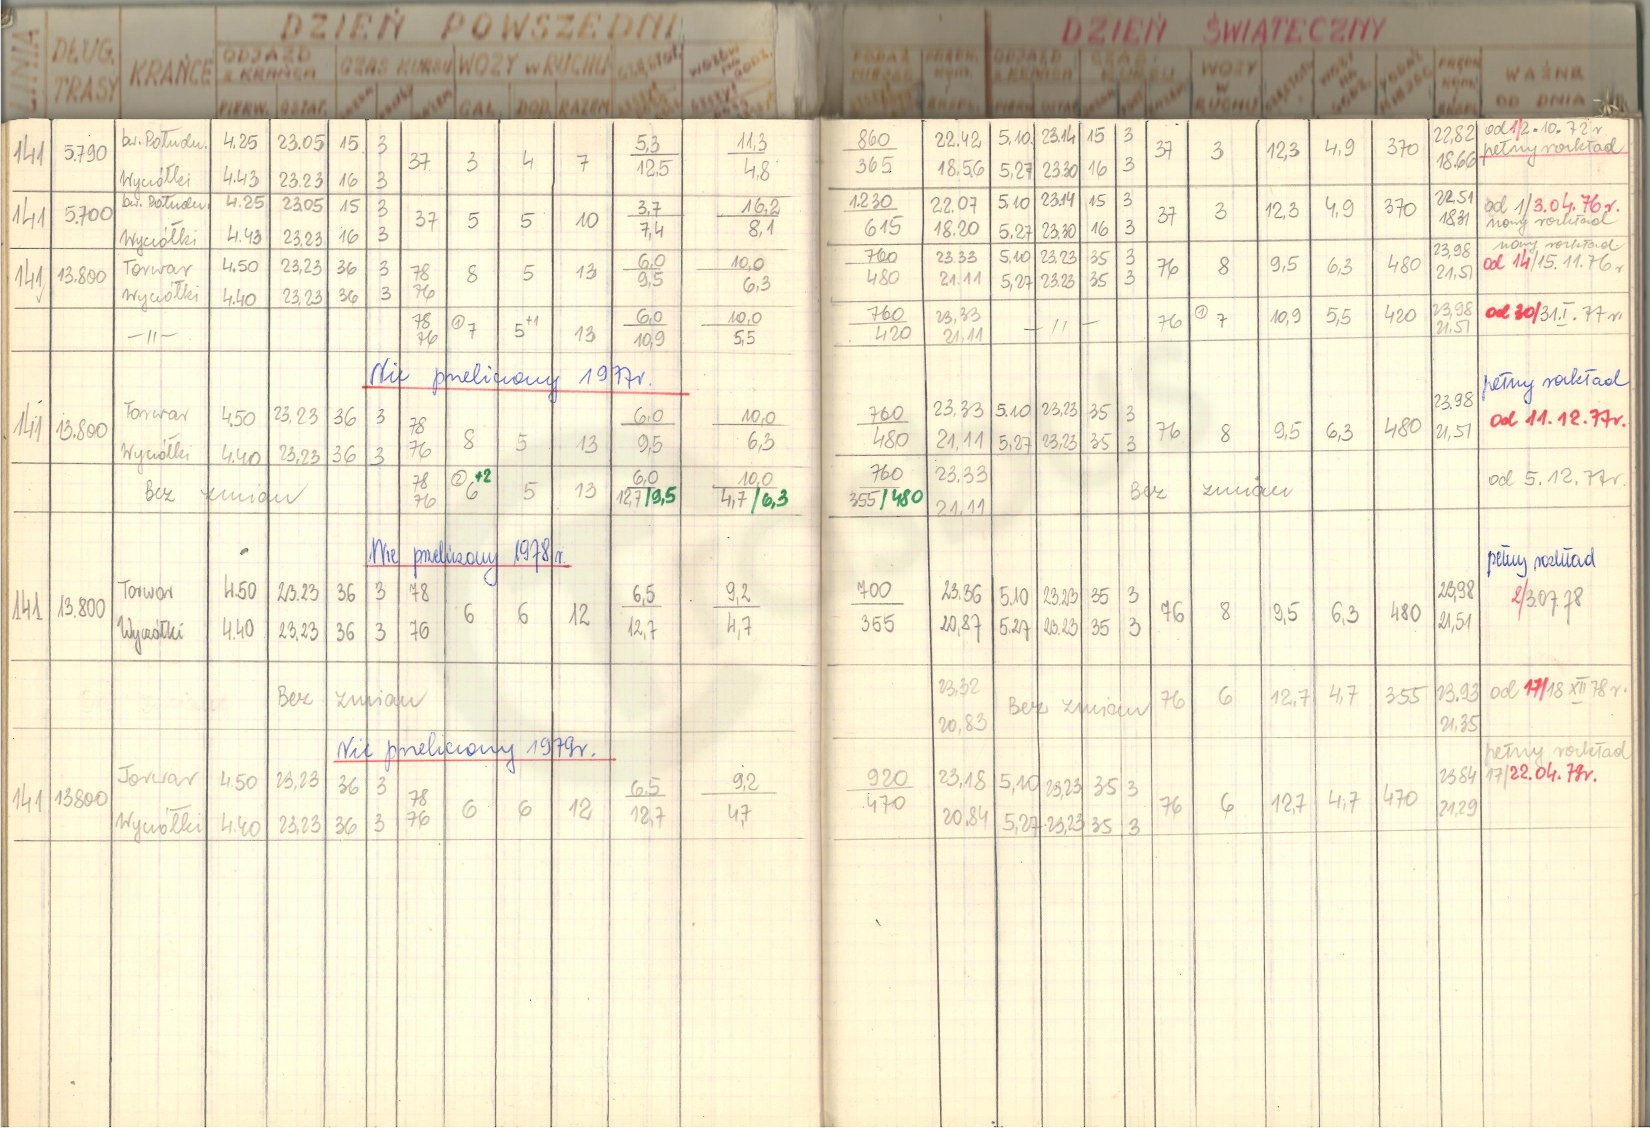 DZIEŃ POWSZEDNI DZIEŃ ŚWIĄTECZNY
LINIA DŁUG. TRASY KRAŃCE ODJAZD z KRAŃCA CZAS KURSU WOZY w RUCHU WAŻNE OD DNIA
PIERW. OSTAT. CAŁ. DOD. RAZEM WOZY W RUCHU
141 5.790 bw. Połudn. 4.25 23.05 15 3 37 3 4 7 5,3 11,3 860 22.42 5.10 23.14 15 3 37 3 12,3 4,9 370 22,82 od 1/2.10.72r
Wyczółki 4.43 23.23 16 3 12,5 4,8 365 18.56 5,27 23.30 16 3 18.66 pełny rozkład
141 5.700 bw. Połudn. 4.25 23.05 15 3 37 5 5 10 3,7 16,2 1230 22.07 5.10 23.14 15 3 37 3 12,3 4,9 370 22.51 od 1/3.04.76r.
Wyczółki 4.43 23.23 16 3 7,4 8,1 615 18.20 5,27 23.30 16 3 18.31 nowy rozkład
141 13.800 Torwar 4.50 23,23 36 3 78 8 5 13 6,0 10,0 760 23.33 5.10 23.23 35 3 76 8 9,5 6,3 480 23,98 nowy rozkład
Wyczółki 4.40 23,23 36 3 76 9,5 6,3 480 21.11 5,27 23.23 35 3 21,51 od 14/15.11.76r
—||— 78 ①7 5+1 13 6,0 10,0 760 23,33 —||— 76 ①7 10,9 5,5 420 23,98 od 30/31.I.77r.
76 10,9 5,5 420 21,11 21.51
Nie przeliczony 1977r.
141 13.800 Torwar 4.50 23,23 36 3 78 8 5 13 6,0 10,0 760 23,33 5.10 23,23 35 3 76 8 9,5 6,3 480 23.98 pełny rozkład
Wyczółki 4.40 23,23 36 3 76 9,5 6,3 480 21,11 5,27 23,23 35 3 21,51 od 11.12.77r.
Bez zmian 78 ②6+2 5 13 6,0 10,0 760 23.33 Bez zmian od 5.12.77r.
76 12,7/9,5 4,7/6,3 355/480 21,11
Nie przeliczony 1978r.
141 13.800 Torwar 4.50 23.23 36 3 78 6 6 12 6,5 9,2 700 23.36 5.10 23.23 35 3 76 8 9,5 6,3 480 23,98 pełny rozkład
Wyczółki 4.40 23,23 36 3 76 12,7 4,7 355 20,87 5.27 23.23 35 3 21,51 2/3.07.78
Bez zmian 23,32 Bez zmian 76 6 12,7 4,7 355 23.93 od 17/18 XII 78r.
20,83 21,35
Nie przeliczony 1979r.
141 13800 Torwar 4.50 23,23 36 3 78 6 6 12 6.5 9,2 920 23,18 5,10 23,23 35 3 76 6 12,7 4,7 470 23,84 pełny rozkład
Wyczółki 4.40 23,23 36 3 76 12,7 4,7 470 20,84 5,27 23,23 35 3 21,29 17/22.04.79r.